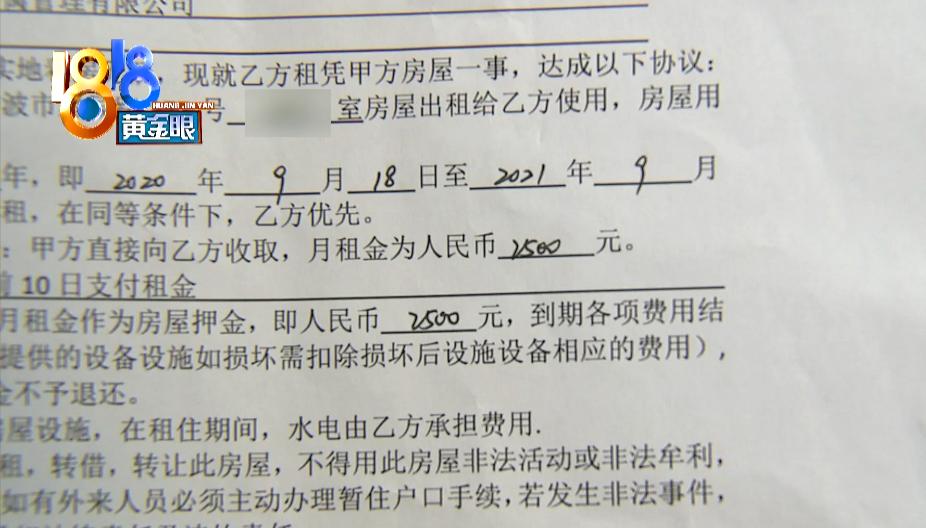 管理有限公司
1818
HUANG JIN YAN
黄金眼
实地 ，现就乙方租凭甲方房屋一事，达成以下协议：
波市 号 室房屋出租给乙方使用，房屋用
年，即 2020 年 9 月 18 日至 2021 年 9 月
租，在同等条件下，乙方优先。
：甲方直接向乙方收取，月租金为人民币 2500 元。
前 10 日支付租金
月租金作为房屋押金，即人民币 2500 元，到期各项费用结
提供的设备设施如损坏需扣除损坏后设施设备相应的费用），
金不予退还。
房屋设施，在租住期间，水电由乙方承担费用.
租，转借，转让此房屋，不得用此房屋非法活动或非法牟利，
如有外来人员必须主动办理暂住户口手续，若发生非法事件，